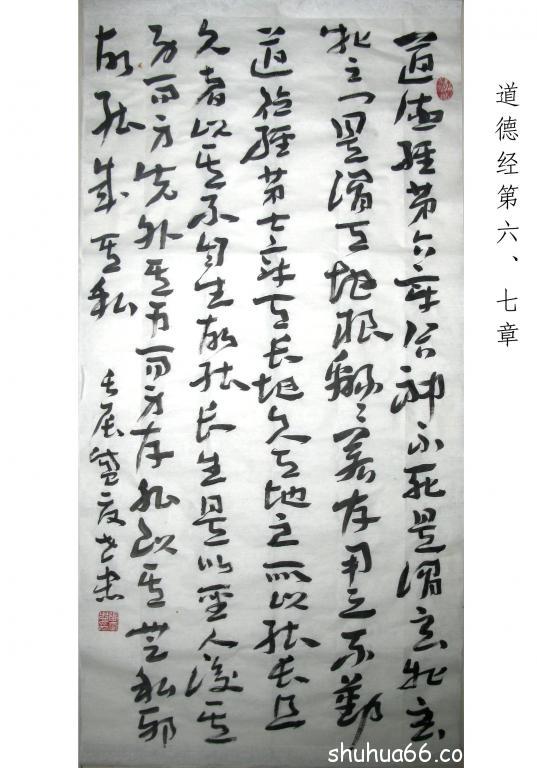 道德经第六、七章
道德經第六章谷神不死是謂玄牝玄
牝之門是謂天地根綿〻若存用之不勤
道德經第七章天長地久天地之所以能長且
久者以其不自生故能長生是以聖人後其
身而身先外其身而身存非以其無私邪
故能成其私
盛夏
shuhua66.co